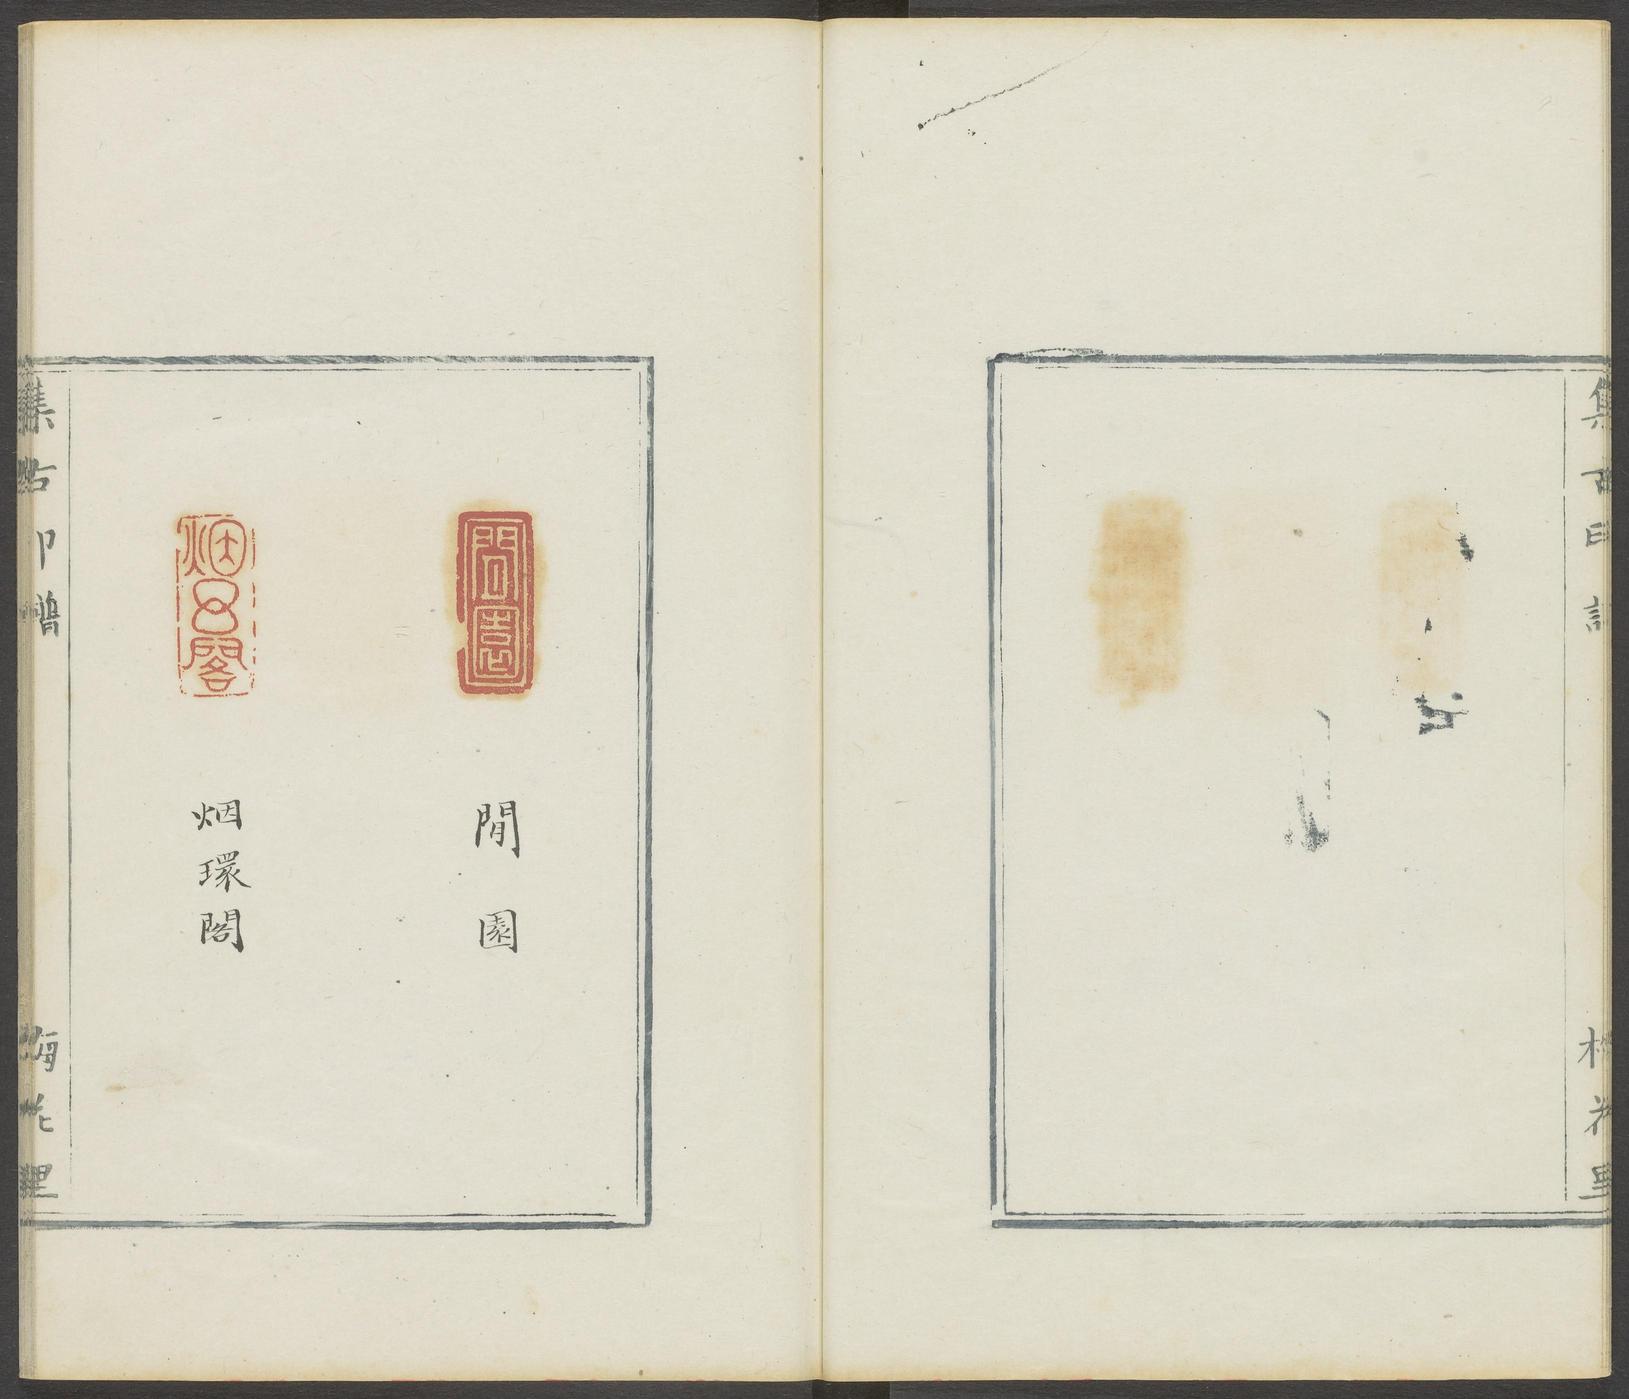 集古印譜
梅花里
閒園
閒園
烟環閣
集古印譜
梅花里